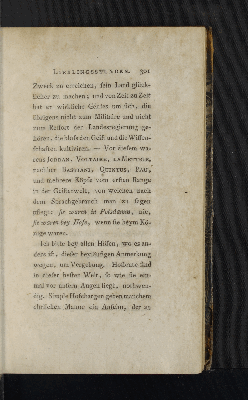 LIEBLINGSSTUNDEN. 301
Zweck zu erreichen, sein Land glück-
licher zu machen; und von Zeit zu Zeit
hat er wirkliche Genies um sich, die
übrigens nicht zum Militäre und nicht
zum Ressort der Landesregierung ge-
hören, die blos den Geist und die Wissen-
schaften kultiviren. — Vor diesem wa-
rens JORDAN, VOLTAIRE, LAMETTRIE,
nachher BASTIANI, QUINTUS, PAU,
und mehrere Köpfe vom ersten Range
in der Geisterwelt, von welchen nach
dem Sprachgebrauch man zu sagen
pflegt: sie waren in Potsdamm, nie,
sie waren bey Hofe, wenn sie beym Kö-
nige waren.
Ich bitte bey allen Höfen, wo es an-
ders ist, dieser beyläufigen Anmerkung
wegen, um Vergebung. Hofleute sind
in dieser besten Welt, so wie sie ein-
mal vor unsern Augen liegt, nothwen-
dig. Simple Hofchargen geben manchem
ehrlichen Manne ein Ansehn, der es